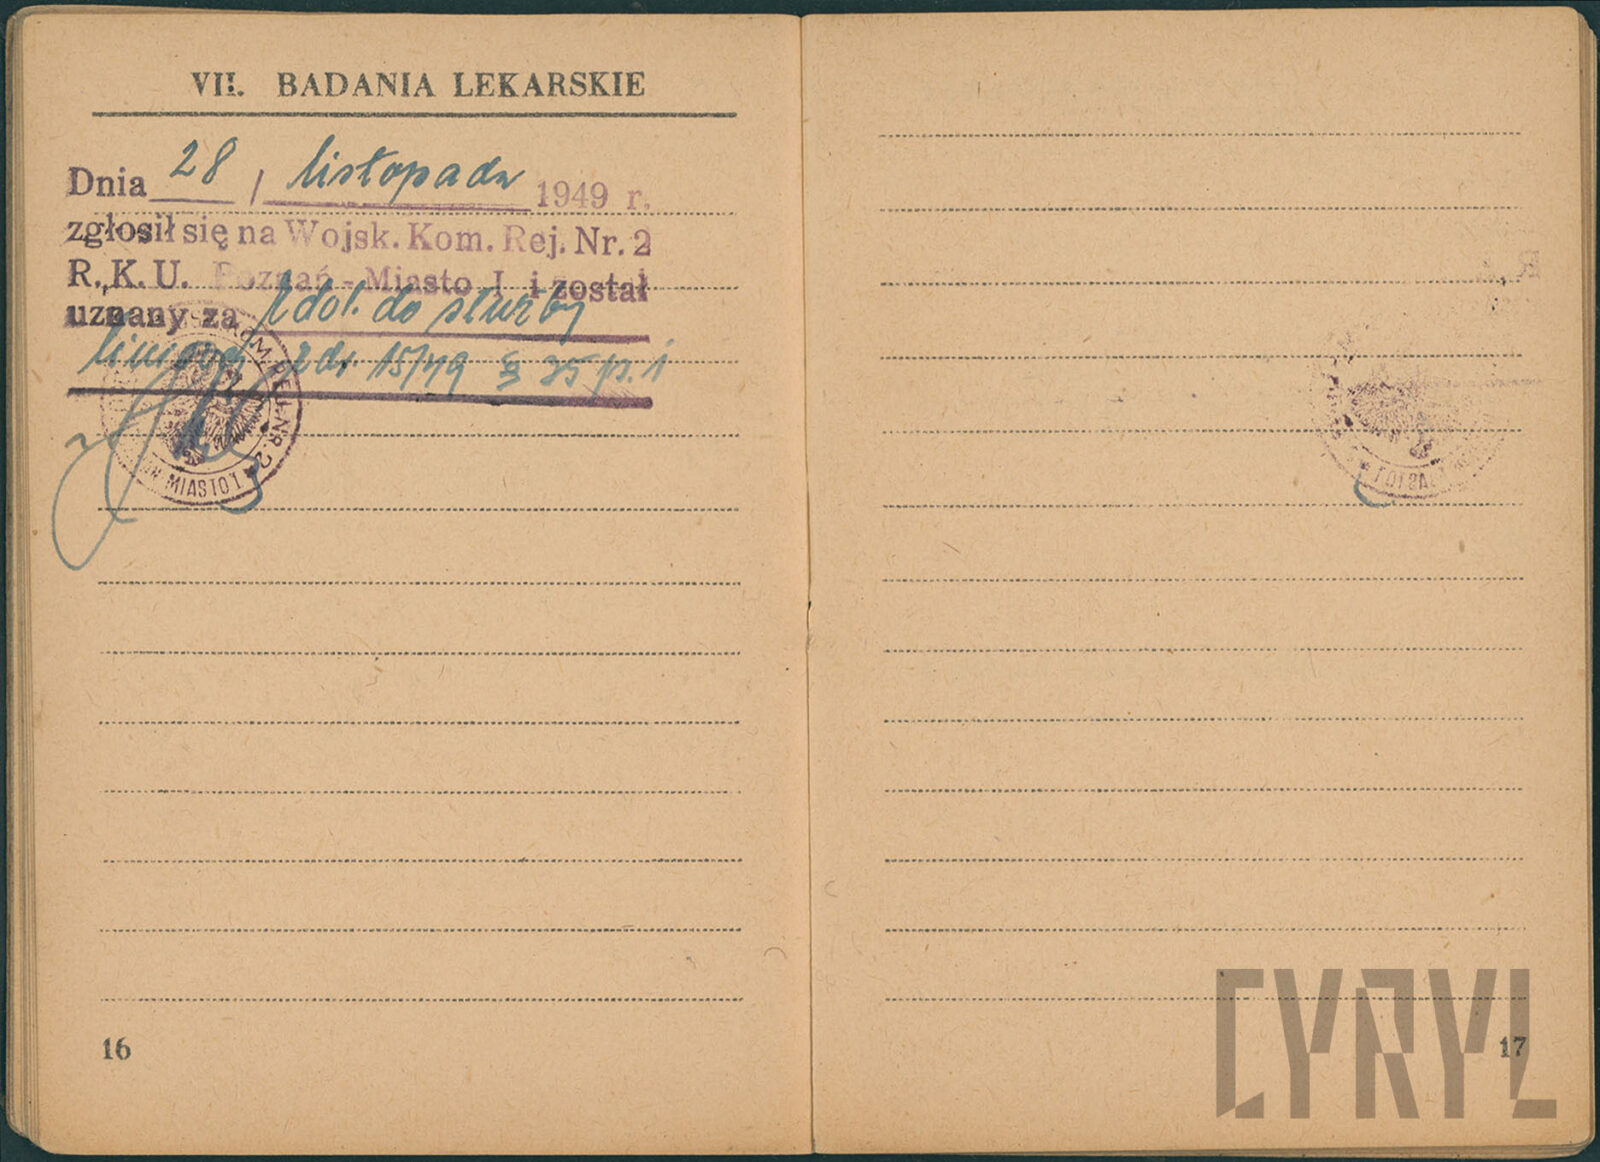 VII. BADANIA LEKARSKIE
Dnia 28 / listopada 1949 r.
zgłosił się na Wojsk. Kom. Rej. Nr. 2
R. K. U. Poznań - Miasto I i został
uznany za zdol. do służby
liniowej zdr. 15/49 § 35 p. 1
KOM. REJ. NR. 2
MIASTO I
16
17
CYRYL